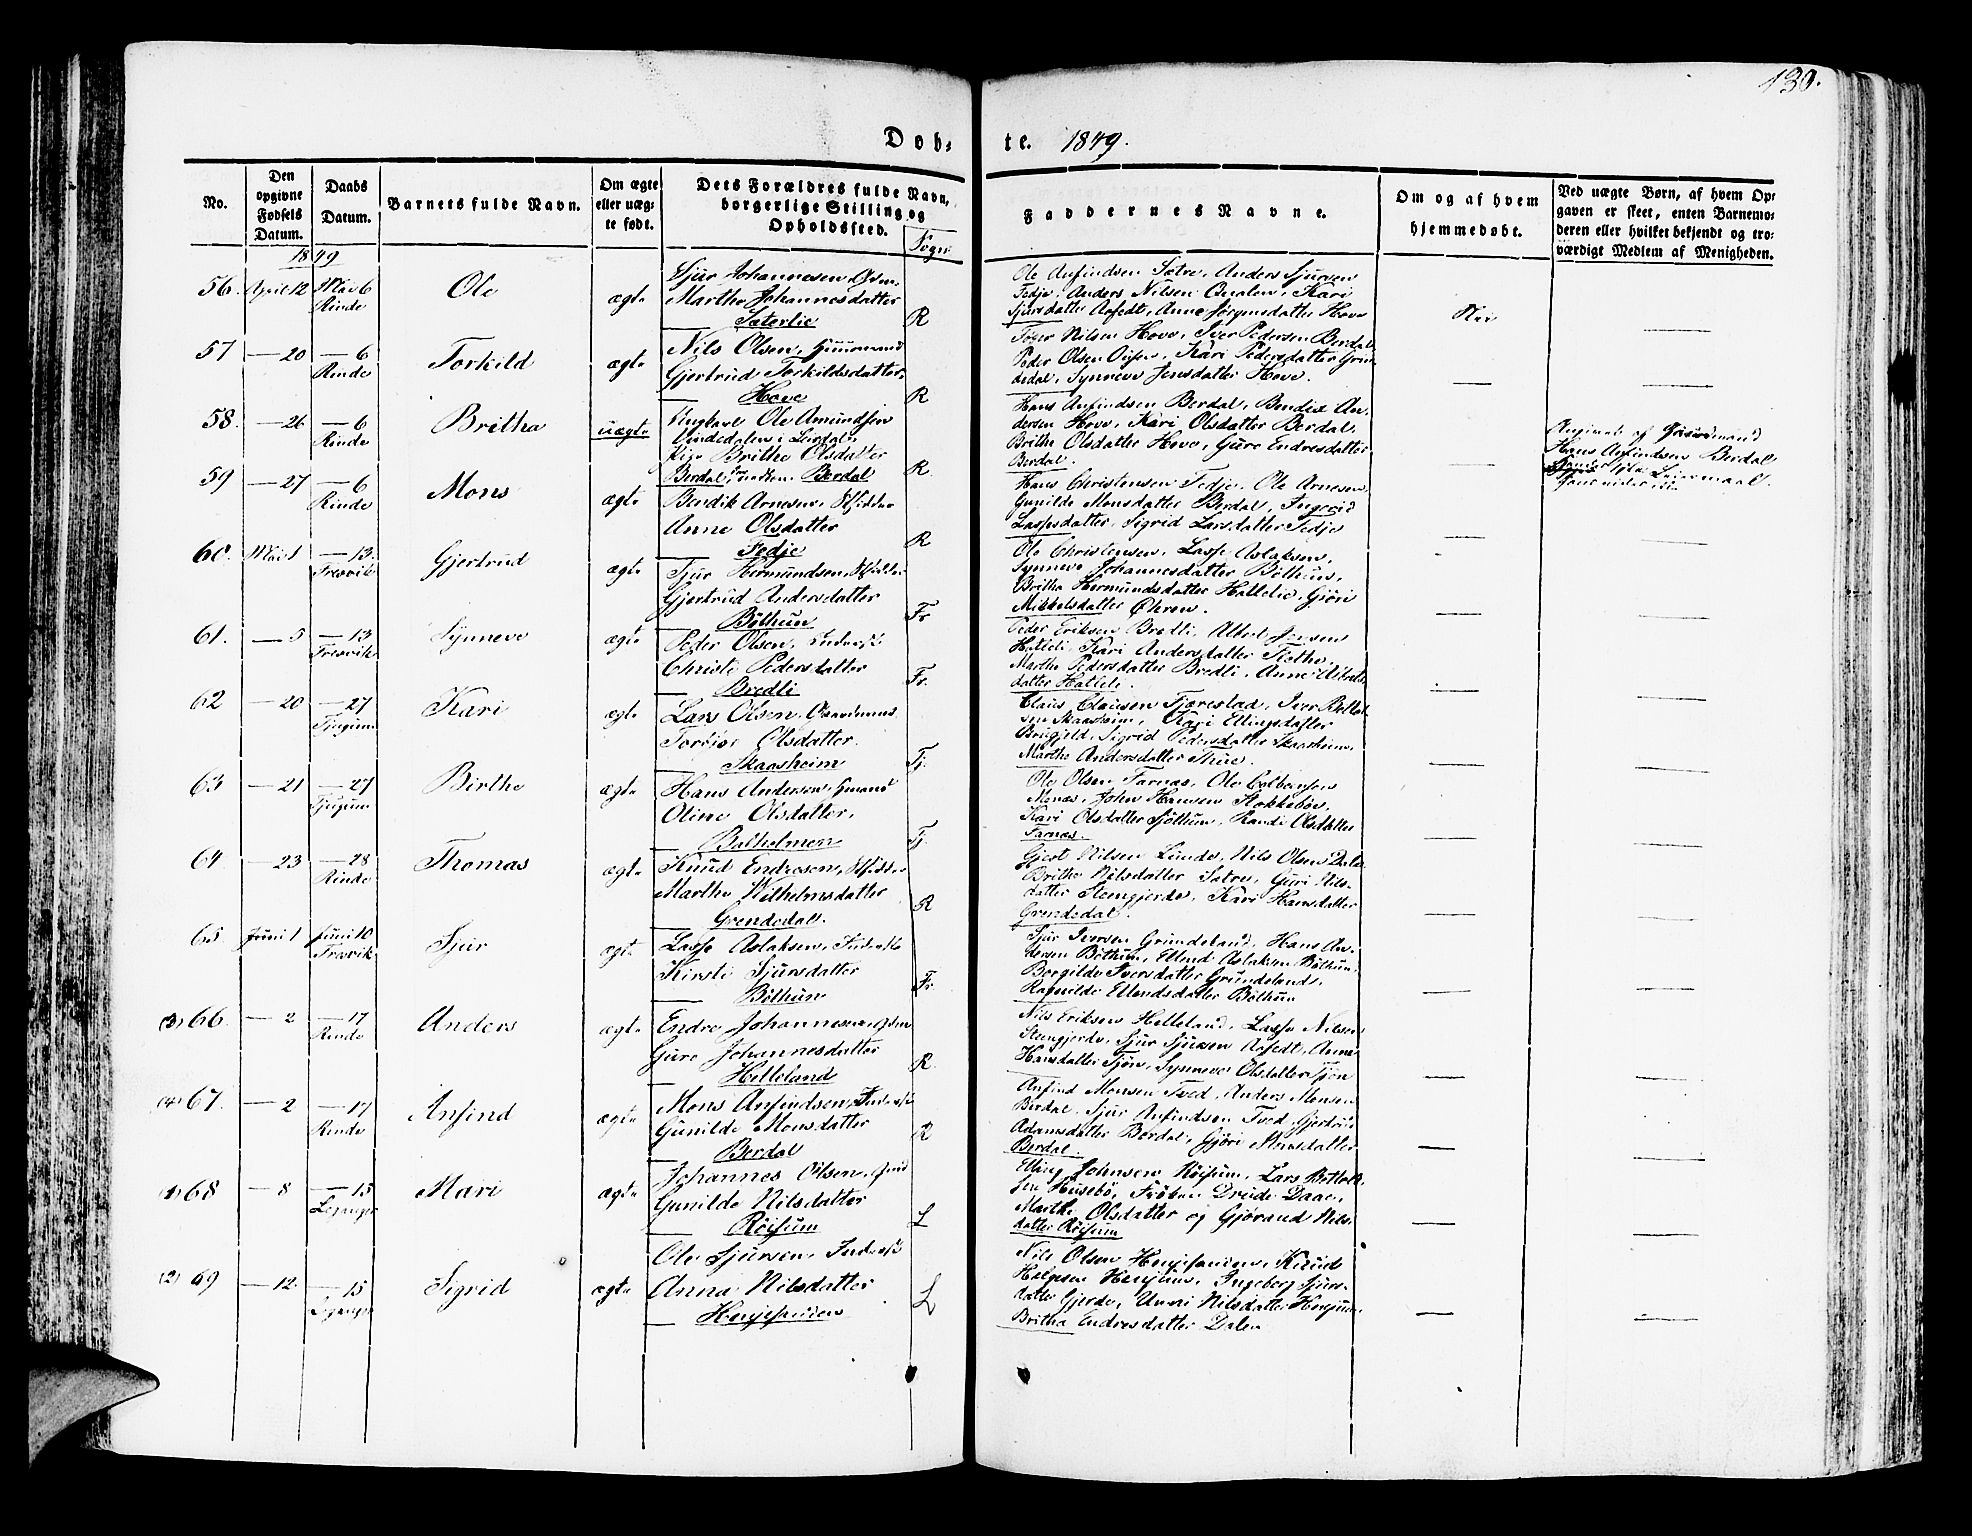 130.
Døb- te. 1849.
No.
Den opgivne Fødsels Datum.
Daabs Datum.
Barnets fulde Navn.
Om ægte eller uægte født.
Dets Forældres fulde Navn, borgerlige Stilling og Opholdssted.
Sogn
Faddernes Navne.
Om og af hvem hjemmedøbt.
Ved uægte Børn, af hvem Opgaven er skeet, enten Barnemoderen eller hvilket bekjendt og troværdigt Medlem af Menigheden.
1849
56. April 12 Mai 6 Rinde Ole ægte
Sjur Johannesen
Marthe Johannesdatter
Sæterlie R
Ole Anfindsen Sætre, Anders Sjursen
Fedje, Anders Nilsen Qualen, Kari
Sjursdatter Aafedt, Anne Jörgensdatter Hove
Nei
57 — 20 — 6 Rinde Torkild ægte
Nils Olsen,
Gjertrud Torkildsdatter,
Hove R
Nilsen Hove, Iver Pedersen Berdal
Peder Olsen, Kari Pedersdatter Gren-
dedal, Synneve Jensdatter Hove.
58. — 26 — 6 Rinde Britha uægte
Ungkarl Ole Amundsen
i Leirdal,
Pige Brithe Olsdatter
Berdal Berdal R
Hans Anfindsen Berdal, Bendix An-
dersen Hove, Kari Olsdatter Berdal
Brithe Olsdatter Hove, Gure Endresdatter
Berdal.
Angivet af Gaardmand
Hans Anfindsen Berdal
Leiermaal.
59 — 27 — 6 Rinde Mons ægte
Bendik Arnesen,
Anne Olsdatter
Fedje R
Hans Christensen Fedje, Ole Arnesen
Gunilde Monsdatter Berdal, Ingerid
Lassesdatter, Sigrid Larsdatter Fedje
60. Mai 1 — 13. Fresvik Gjertrud ægte
Sjur Hermundsen,
Gjertrud Andersdatter
Böthun Fr
Ole Christensen, Lasse Aslaksen,
Synneve Johannesdatter Böthun,
Britha Hermundsdatter Hatlelie, Gjöri
Mikkelsdatter Öhren.
61. — 5 — 13 Fresvik Synneve ægte
Peder Olsen,
Christi Pedersdatter
Bredli Fr.
Peder Eriksen Bredli, Albert Jensen
Hatleli, Kari Andersdatter
Marthe Pedersdatter Bredli, Anne
datter Hatleli.
62 — 20 — 27 Tjugum Kari ægte
Lars Olsen,
Olsdatter.
Skaasheim Tj.
Claus Clausen Fjærestad, Iver
sen Skaasheim, Kari Ellingsdatter
Sigrid Pedersdatter Skaasheim,
Marthe Andersdatter Thue.
63 — 21 — 27 Tjugum Birthe ægte
Hans Andersen,
Oline Olsdatter,
Balholmen Tj.
Ole Olsen Farnæs, Ole
Menæs, John Hansen Stokkebö,
Kari Olsdatter Sjöthun, Randi Olsdatter
Farnæs.
64 — 23 — 28 Rinde Thomas ægte
Knud Endresen,
Marthe Wilhelmsdatter
Grendedal. R
Gjert Nilsen Lunde, Nils Olsen Dale
Brithe Nilsdatter Sætre, Guri Nils-
datter Steengjerde, Kari Hansdatter
Grendedal.
65 Juni 1 Juni 10 Fresvik Sjur ægte
Lasse Aslaksen,
Kirsti Sjursdatter
Böthun Fr
Sjur Iversen Grundeland, Hans An-
dersen Böthun, Ellend Aslaksen Böthun
Borgilde Iversdatter Grundeland,
Ragnilde Ellendsdatter Böthun
(3) 66. — 2 — 17 Rinde Anders ægte
Endre Johannesen,
Gure Johannesdatter
Helleland R
Nils Eriksen Helleland, Lasse Nilsen
Steengjerde, Sjur Sjursen Aafedt, Anne
Hansdatter Sjön, Synneve Olsdatter Sjön
(4) 67. — 2 — 17 Rinde Anfind ægte
Mons Anfindsen,
Gunilde Monsdatter
Berdal R
Anfind Monsen Tved, Anders Monsen
Berdal, Sjur Anfindsen Tved, Gjertrud
Adamsdatter Berdal, Gjöri Monsdatter
Berdal.
(1) 68 — 8 — 15 Leganger Mari ægte
Johannes Olsen,
Gunilde Nilsdatter
Röisum L
Elling Johnsen Röisum, Lars
sen Husebö, Fröken Drude Daae,
Marthe Olsdatter og Gjörand Nils-
datter Röisum
(2) 69 — 12. — 15 Leganger Sigrid ægte
Ole Sjursen,
Anna Nilsdatter
L
Nils Olsen, Knud
Helgesen Henjum, Ingeborg Sjurs-
datter Gjerde, Unni Nilsdatter Henjum
Britha Endresdatter Dalen